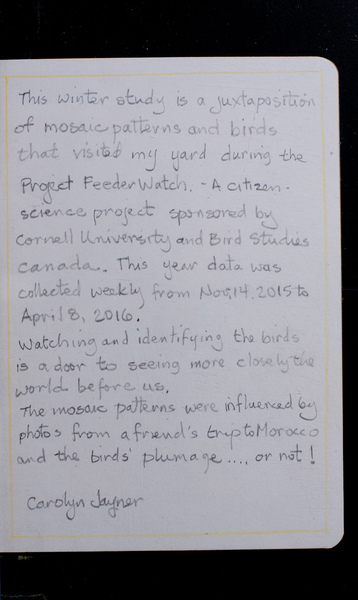 This winter study is a juxtaposition
of mosaic patterns and birds
that visited my yard during the
Project FeederWatch. - A citizen -
science project sponsored by
Cornell University and Bird Studies
Canada. This year data was
collected weekly from Nov, 14, 2015 to
April 8, 2016.
Watching and identifying the birds
is a door to seeing more closely the
world before us.
The mosaic patterns were influenced by
photos from a friend's trip to Morocco
and the birds' plumage .... or not!
Carolyn Jayner